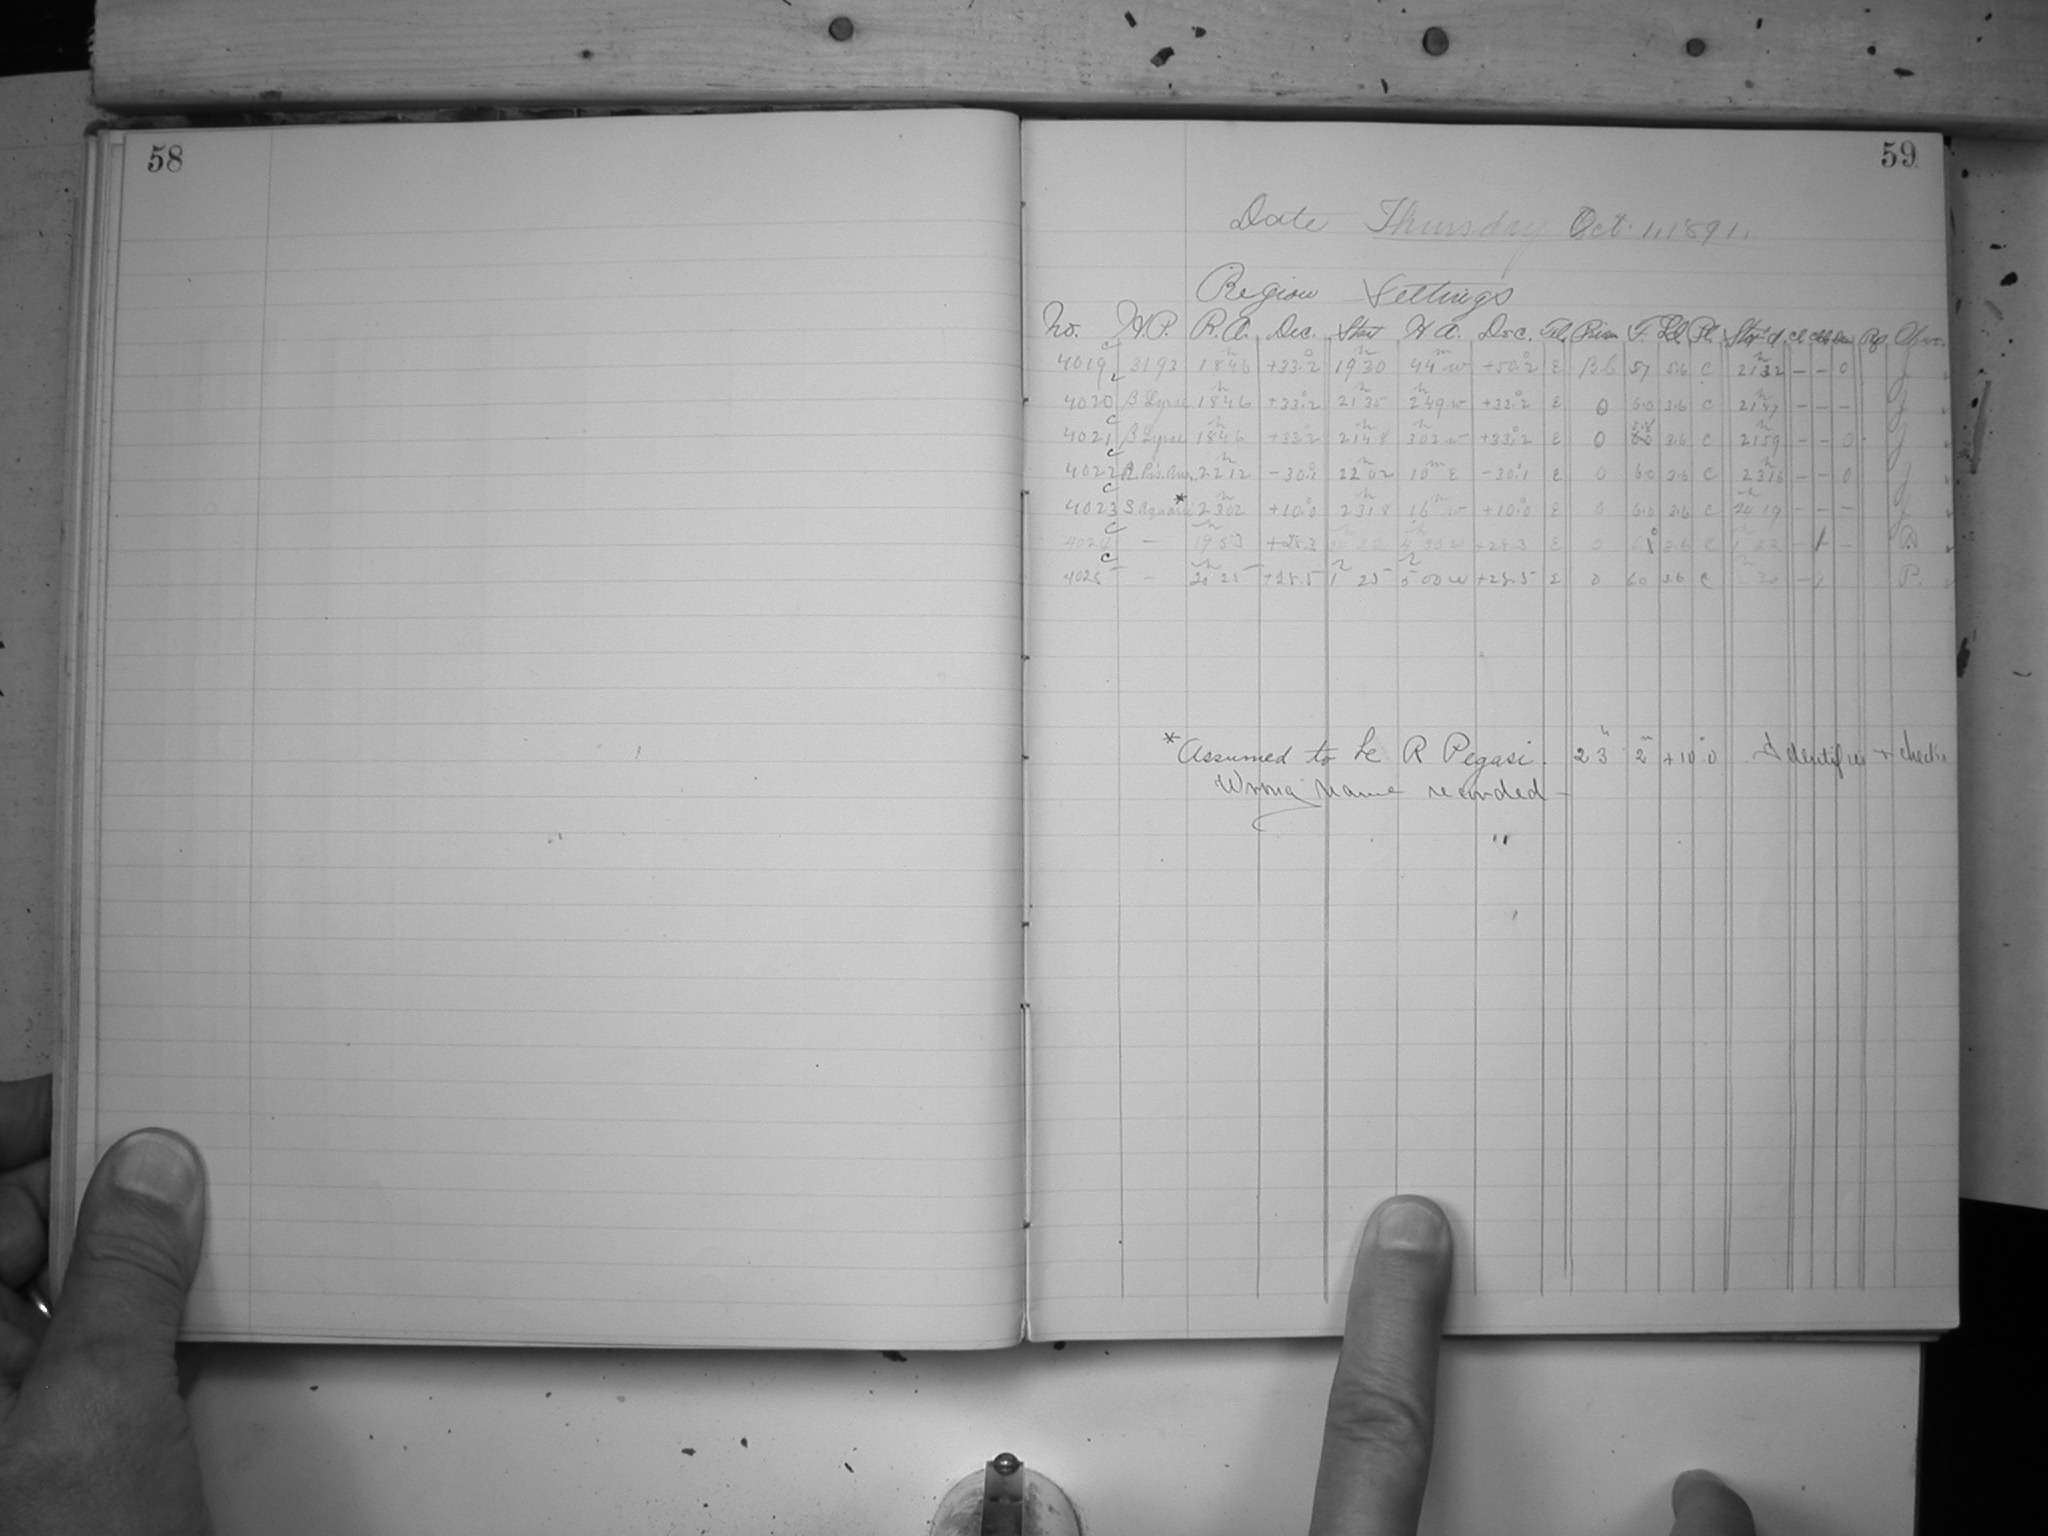 58
59
Date Thursday Oct. 1, 1891.
Region Settings
No. H.P. R.A. Dec. Start H.A. Dec. Tel. Prism F. Pl. Stop'd. Cl. Obsr.
c
4019 3192 18h46 +33°.2 19h30 44m w +50°.2 E B.C 57 5.6 C 21h32 – – 0 J
4020 β Lyrae 18h46 +33°.2 21h35 2h49 w +33°.2 E 0 6.0 3.6 C 21h47 – – – J
c
4021 β Lyrae 18h46 +33°.2 21h48 3h02 w +33°.2 E 0 3.6 C 21h59 – – 0 J
c
4022 R Pis. Aus. 22h12 –30°.1 22h02 10m E –30°.1 E 0 6.0 3.6 C 23h16 – – 0 J
c
4023 S Aquarii* 23h02 +10°.0 23h18 16m w +10°.0 E 0 6.0 3.6 C 24h19 – – – J
c
4024 – 19h53 +28.3 +28.3 E 0 3.6 C
c
4025 – 20h25 +28.5 1h25 5h00 w +28.5 E 0 60 3.6 C P.
* Assumed to be R Pegasi. 23h 2m +10°.0 Identifies + checks
Wrong name recorded –
"